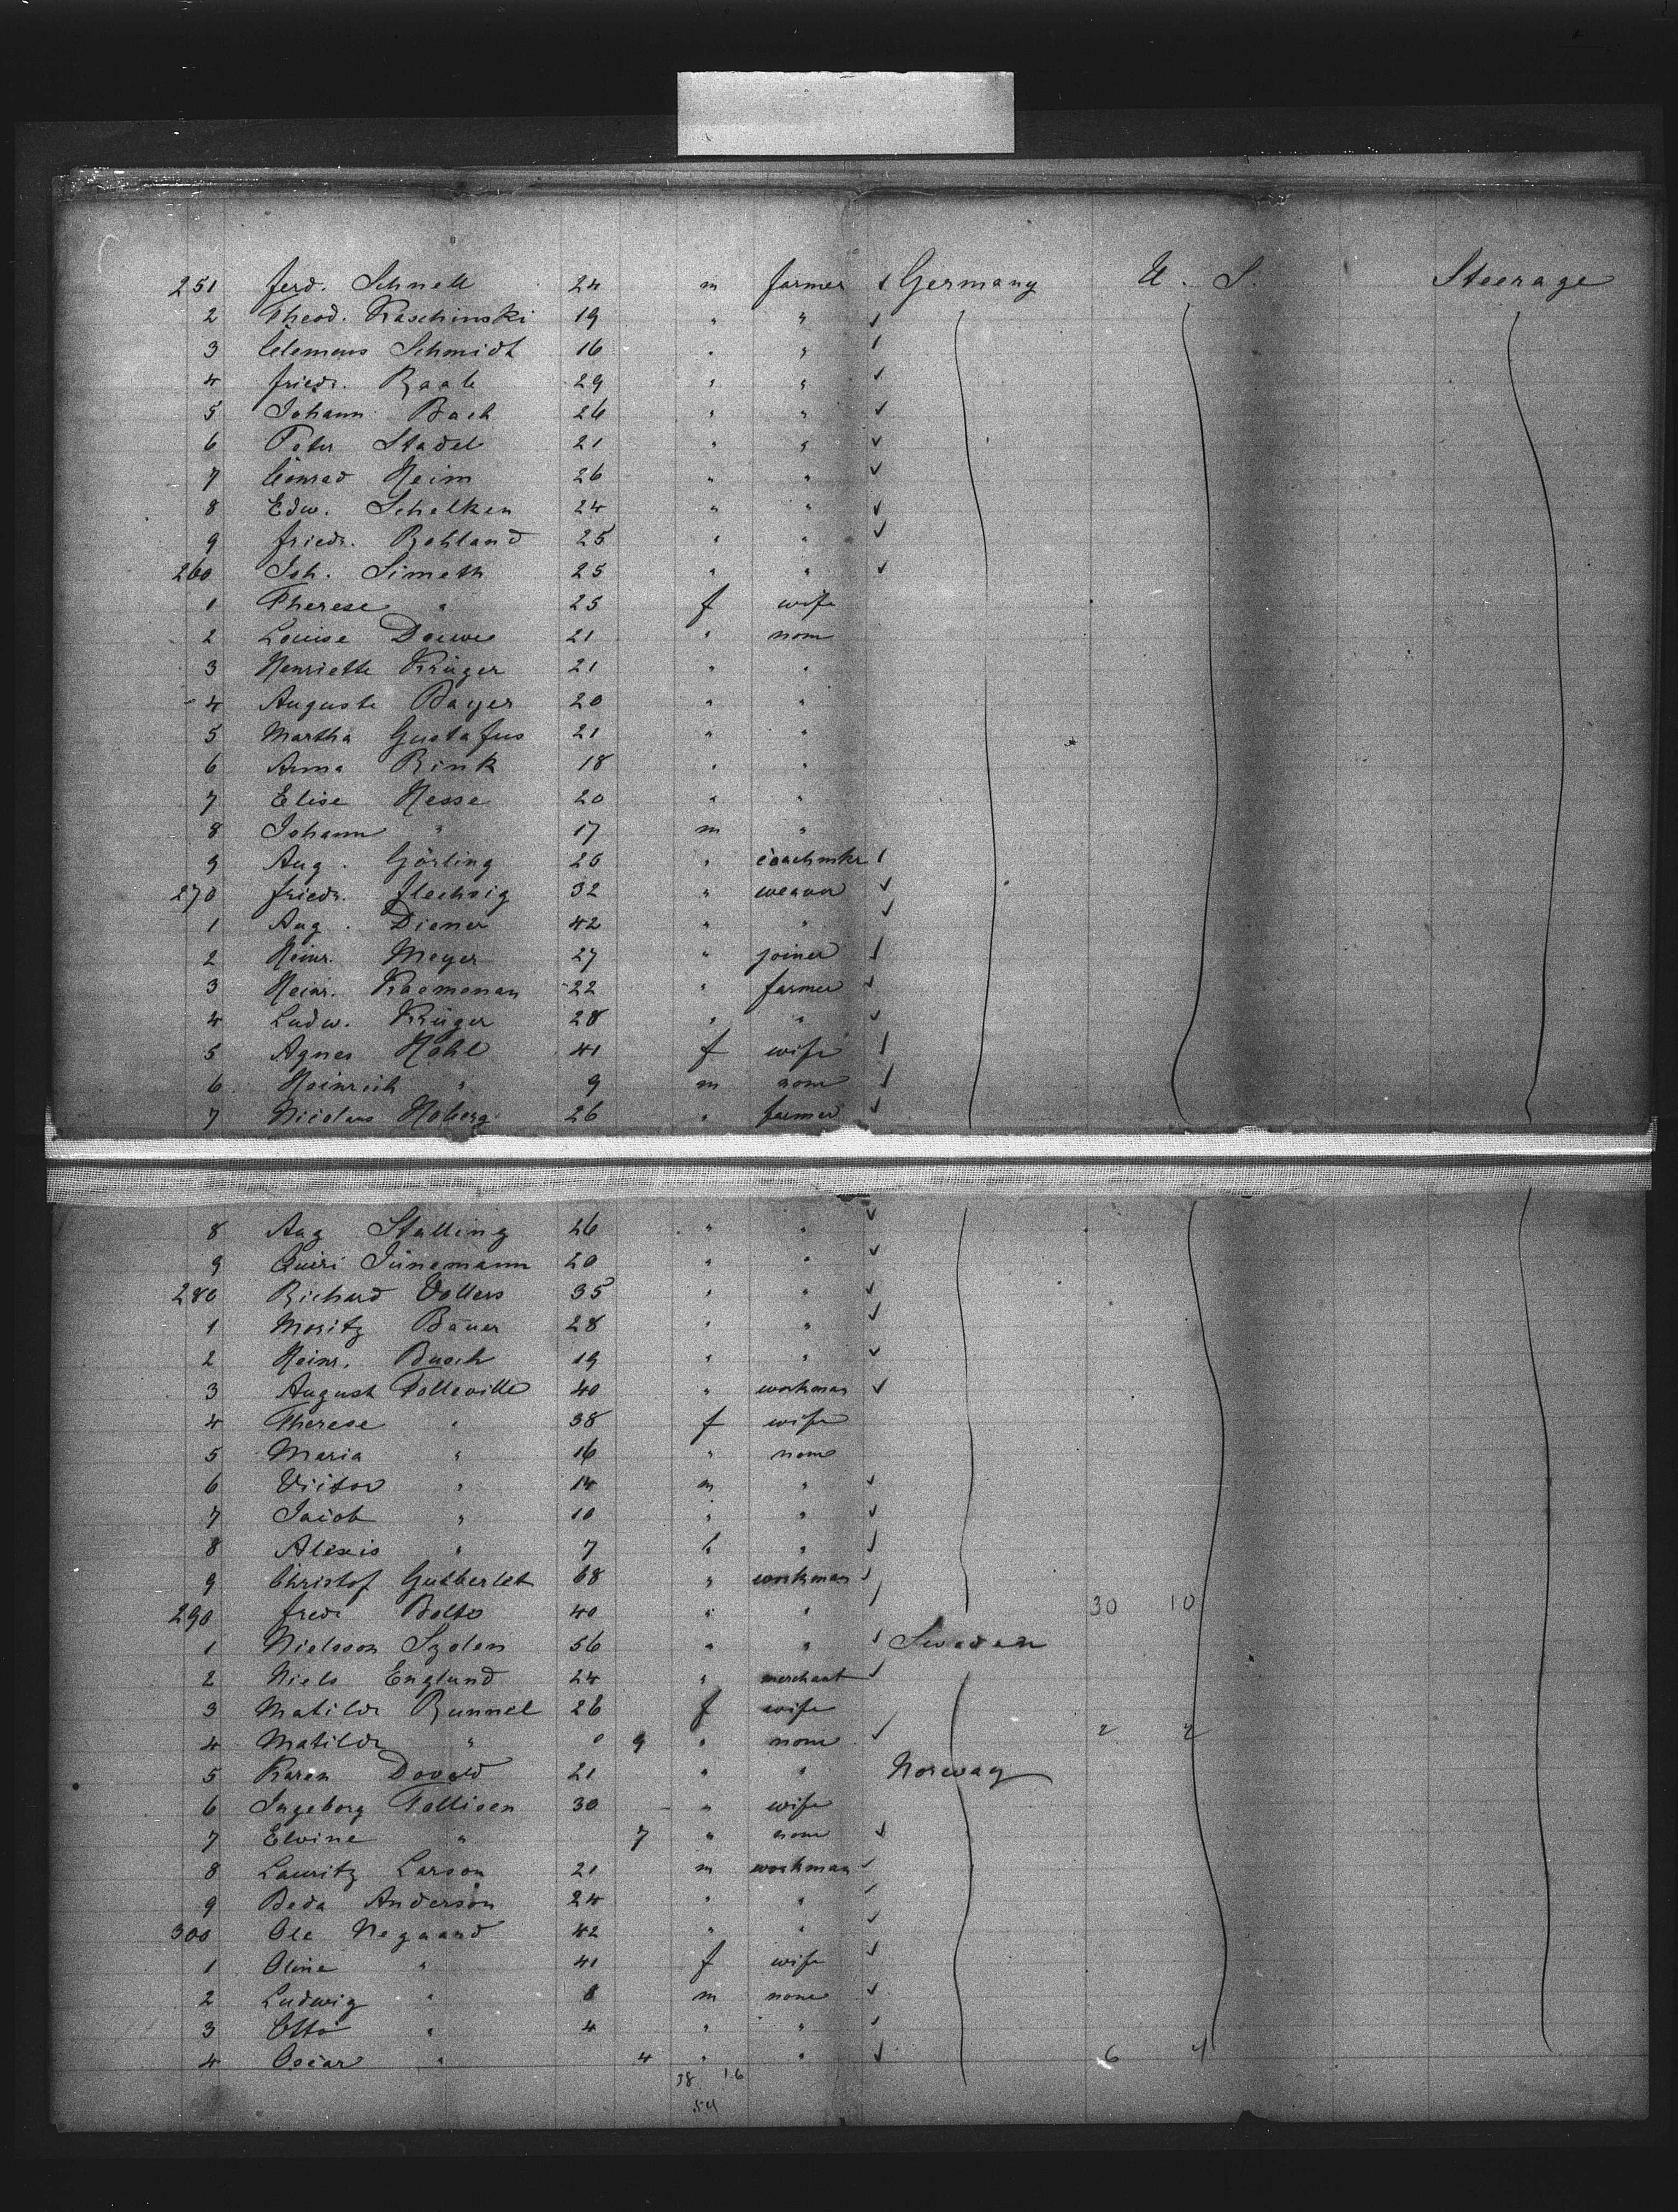 251 Ferd. Schnell 24 m farmer Germany U. S. Steerage
2 Theod. Kaschinski 19 " "
3 Clemens Schmidt 16 " "
4 Friedr. Raabe 29 " "
5 Johann Bach 26 " "
6 Peter Stadel 21 " "
7 Conrad Heim 26 " "
8 Edw. Schelken 24 " "
9 Friedr. Rohland 25 " "
260 Joh. Simeth 25 " "
1 Therese " 25 f wife
2 Louise 21 " none
3 Henriette Krüger 21 " "
4 Auguste Bayer 20 " "
5 Martha Gustafus 21 " "
6 Anna Rink 18 " "
7 Elise Hesse 20 " "
8 Johann " 17 m "
9 Aug. Görling 26 " coachmkr
270 Friedr. Flechsig 32 " weaver
1 Aug. Diener 42 " "
2 Heinr. Meyer 27 " joiner
3 Heinr. 22 " farmer
4 Ludw. Krüger 28 " "
5 Agnes Höhl 41 f wife
6 Heinrich " 9 m none
7 Nicolaus Hoberg 26 " farmer
8 Aug Stalling 26 " "
9 Jünemann 20 " "
280 Richard Vollers 35 " "
1 Moritz Bauer 28 " "
2 Heinr. Busch 19 " "
3 August Tolleville 40 " workman
4 Therese " 38 f wife
5 Maria " 16 " none
6 Victor " 14 m "
7 Jacob " 10 " "
8 Alexis " 7 " "
9 Christof Gutberlet 68 " workman
290 Fredr Bolts 40 " " 30 10
1 Nielsson 56 " " Sweden
2 Niels Englund 24 " merchant
3 Matilde Runnel 26 f wife
4 Matilde " 0 9 " none 2 2
5 Karen 21 " " Norway
6 Ingeborg Tollisen 30 " wife
7 Elvine " 7 " none
8 Lauritz Larson 21 m workman
9 Beda Anderson 24 " "
300 Ole Negaard 42 " "
1 Oline " 41 f wife
2 Ludwig " 8 m none
3 Otto " 4 " "
4 Oscar " 4 " " 6 4
38 16
54